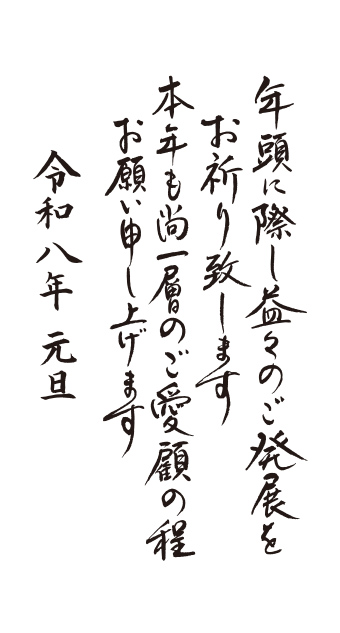 年頭に際し益々のご発展を
お祈り致します
本年も尚一層のご愛顧の程
お願い申し上げます
令和八年 元旦